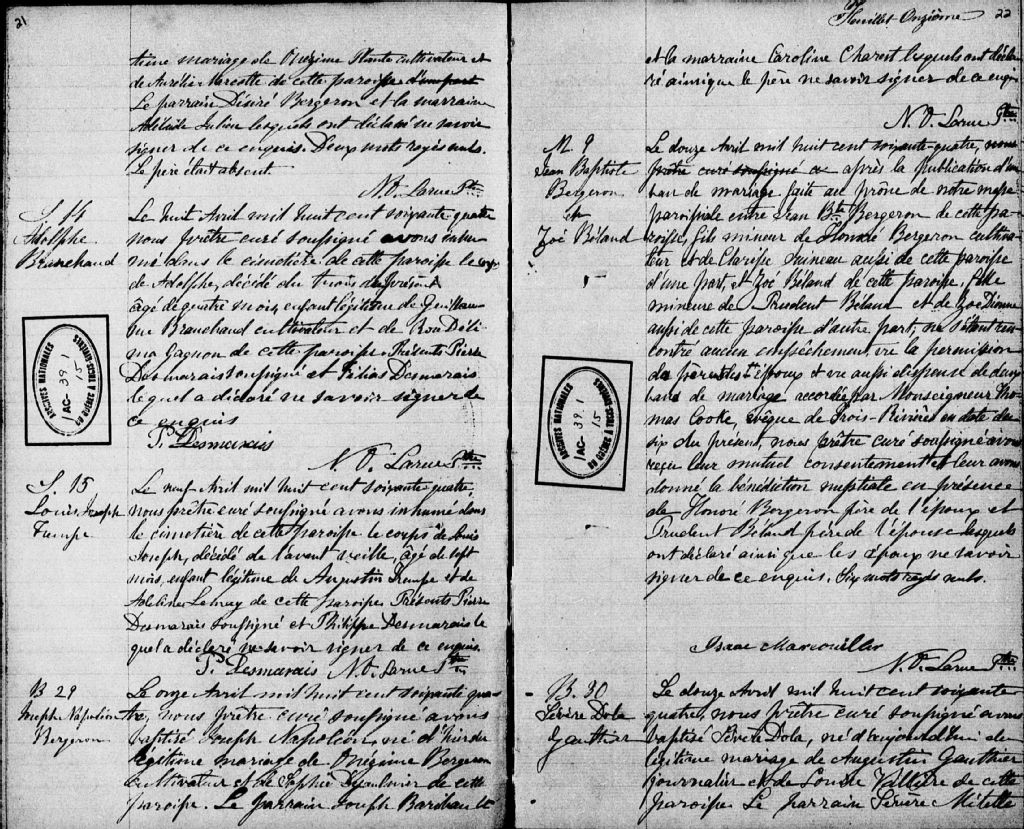 21
time mariage de Onézime Plante cultivateur et
de Aurélie Marcotte de cette paroisse d'une part
Le parrain Désiré Bergeron et la marraine
Adélaïde Julien lesquels ont déclaré ne savoir
signer de ce enquis. Deux mots rayés nuls.
Le père était absent.
N. O. Larue Ptre
S. 14
Adolphe
Branchaud
Le huit Avril mil huit cent soixante quatre
nous prêtre curé soussigné avons inhu-
mé dans le cimetière de cette paroisse le corps
de Adolphe, décédé du trois du présent
âgé de quatre mois, enfant légitime de Guillau-
me Branchaud cultivateur et de Rose Déli-
ma Gagnon de cette paroisse. Présents Pierre
Desmarais soussigné et Elias Desmarais
lequel a déclaré ne savoir signer de
ce enquis
P. Desmarais
N. O. Larue Ptre
ARCHIVES NATIONALES
AC- 39.1
15
DU QUÉBEC À TROIS-RIVIÈRES
S. 15
Louis Joseph
Trempe
Le neuf Avril mil huit cent soixante quatre,
nous prêtre curé soussigné avons inhumé dans
le cimetière de cette paroisse le corps de Louis
Joseph, décédé de l'avant veille, âgé de sept
mois, enfant légitime de Augustin Trempe et de
Adeline Lemay de cette paroisse. Présents Pierre
Desmarais soussigné et Philippe Desmarais le
quel a déclaré ne savoir signer de ce enquis.
P. Desmarais N. O. Larue Ptre
B 29
Joseph Napoléon
Bergeron
Le onze Avril mil huit cent soixante qua-
tre, nous prêtre curé soussigné avons
baptisé Joseph Napoléon, né d'hier du
légitime mariage de Onézime Bergeron
cultivateur et de Sophie Desaulnier de cette
paroisse. Le parrain Joseph Baribault
Feuillet Onzième 22
et la marraine Caroline Charest lesquels ont décla-
ré ainsi que le père ne savoir signer de ce enquis
N. O. Larue Ptre
M 9
Jean Baptiste
Bergeron
et
Zoé Béland
Le douze Avril mil huit cent soixante-quatre, nous
prêtre curé soussigné ce après la publication d'un
ban de mariage faite au prône de notre messe
paroissiale entre Jean Bte Bergeron de cette pa-
roisse, fils mineur de Honoré Bergeron cultiva-
teur et de Clarisse Juneau aussi de cette paroisse
d'une part, et Zoé Béland de cette paroisse, fille
mineure de Prudent Béland et de Zoé Dionne
aussi de cette paroisse d'autre part, ne s'étant ren-
contré aucun empêchement, vu la permission
de pères des époux et vu aussi dispense de deux
bans de mariage accordée par Monseigneur Tho-
mas Cooke, Evêque de Trois-Rivières en date du
six du présent, nous prêtre curé soussigné avons
reçu leur mutuel consentement et leur avons
donné la bénédiction nuptiale en présence
de Honoré Bergeron père de l'époux et
Prudent Béland père de l'épouse lesquels
ont déclaré ainsi que les époux ne savoir
signer de ce enquis. Six mots rayés nuls.
Isaac Marcouiller
N. O. Larue Ptre
ARCHIVES NATIONALES
AC- 39.1
15
DU QUÉBEC À TROIS-RIVIÈRES
B. 30
Sévère Dola
Gauthier
Le douze Avril mil huit cent soixante
quatre, nous prêtre curé soussigné avons
baptisé Sévère Dola, né d'aujourd'hui du
légitime mariage de Augustin Gauthier
journalier et de Louise Vallière de cette
paroisse Le parrain Sévère Milette